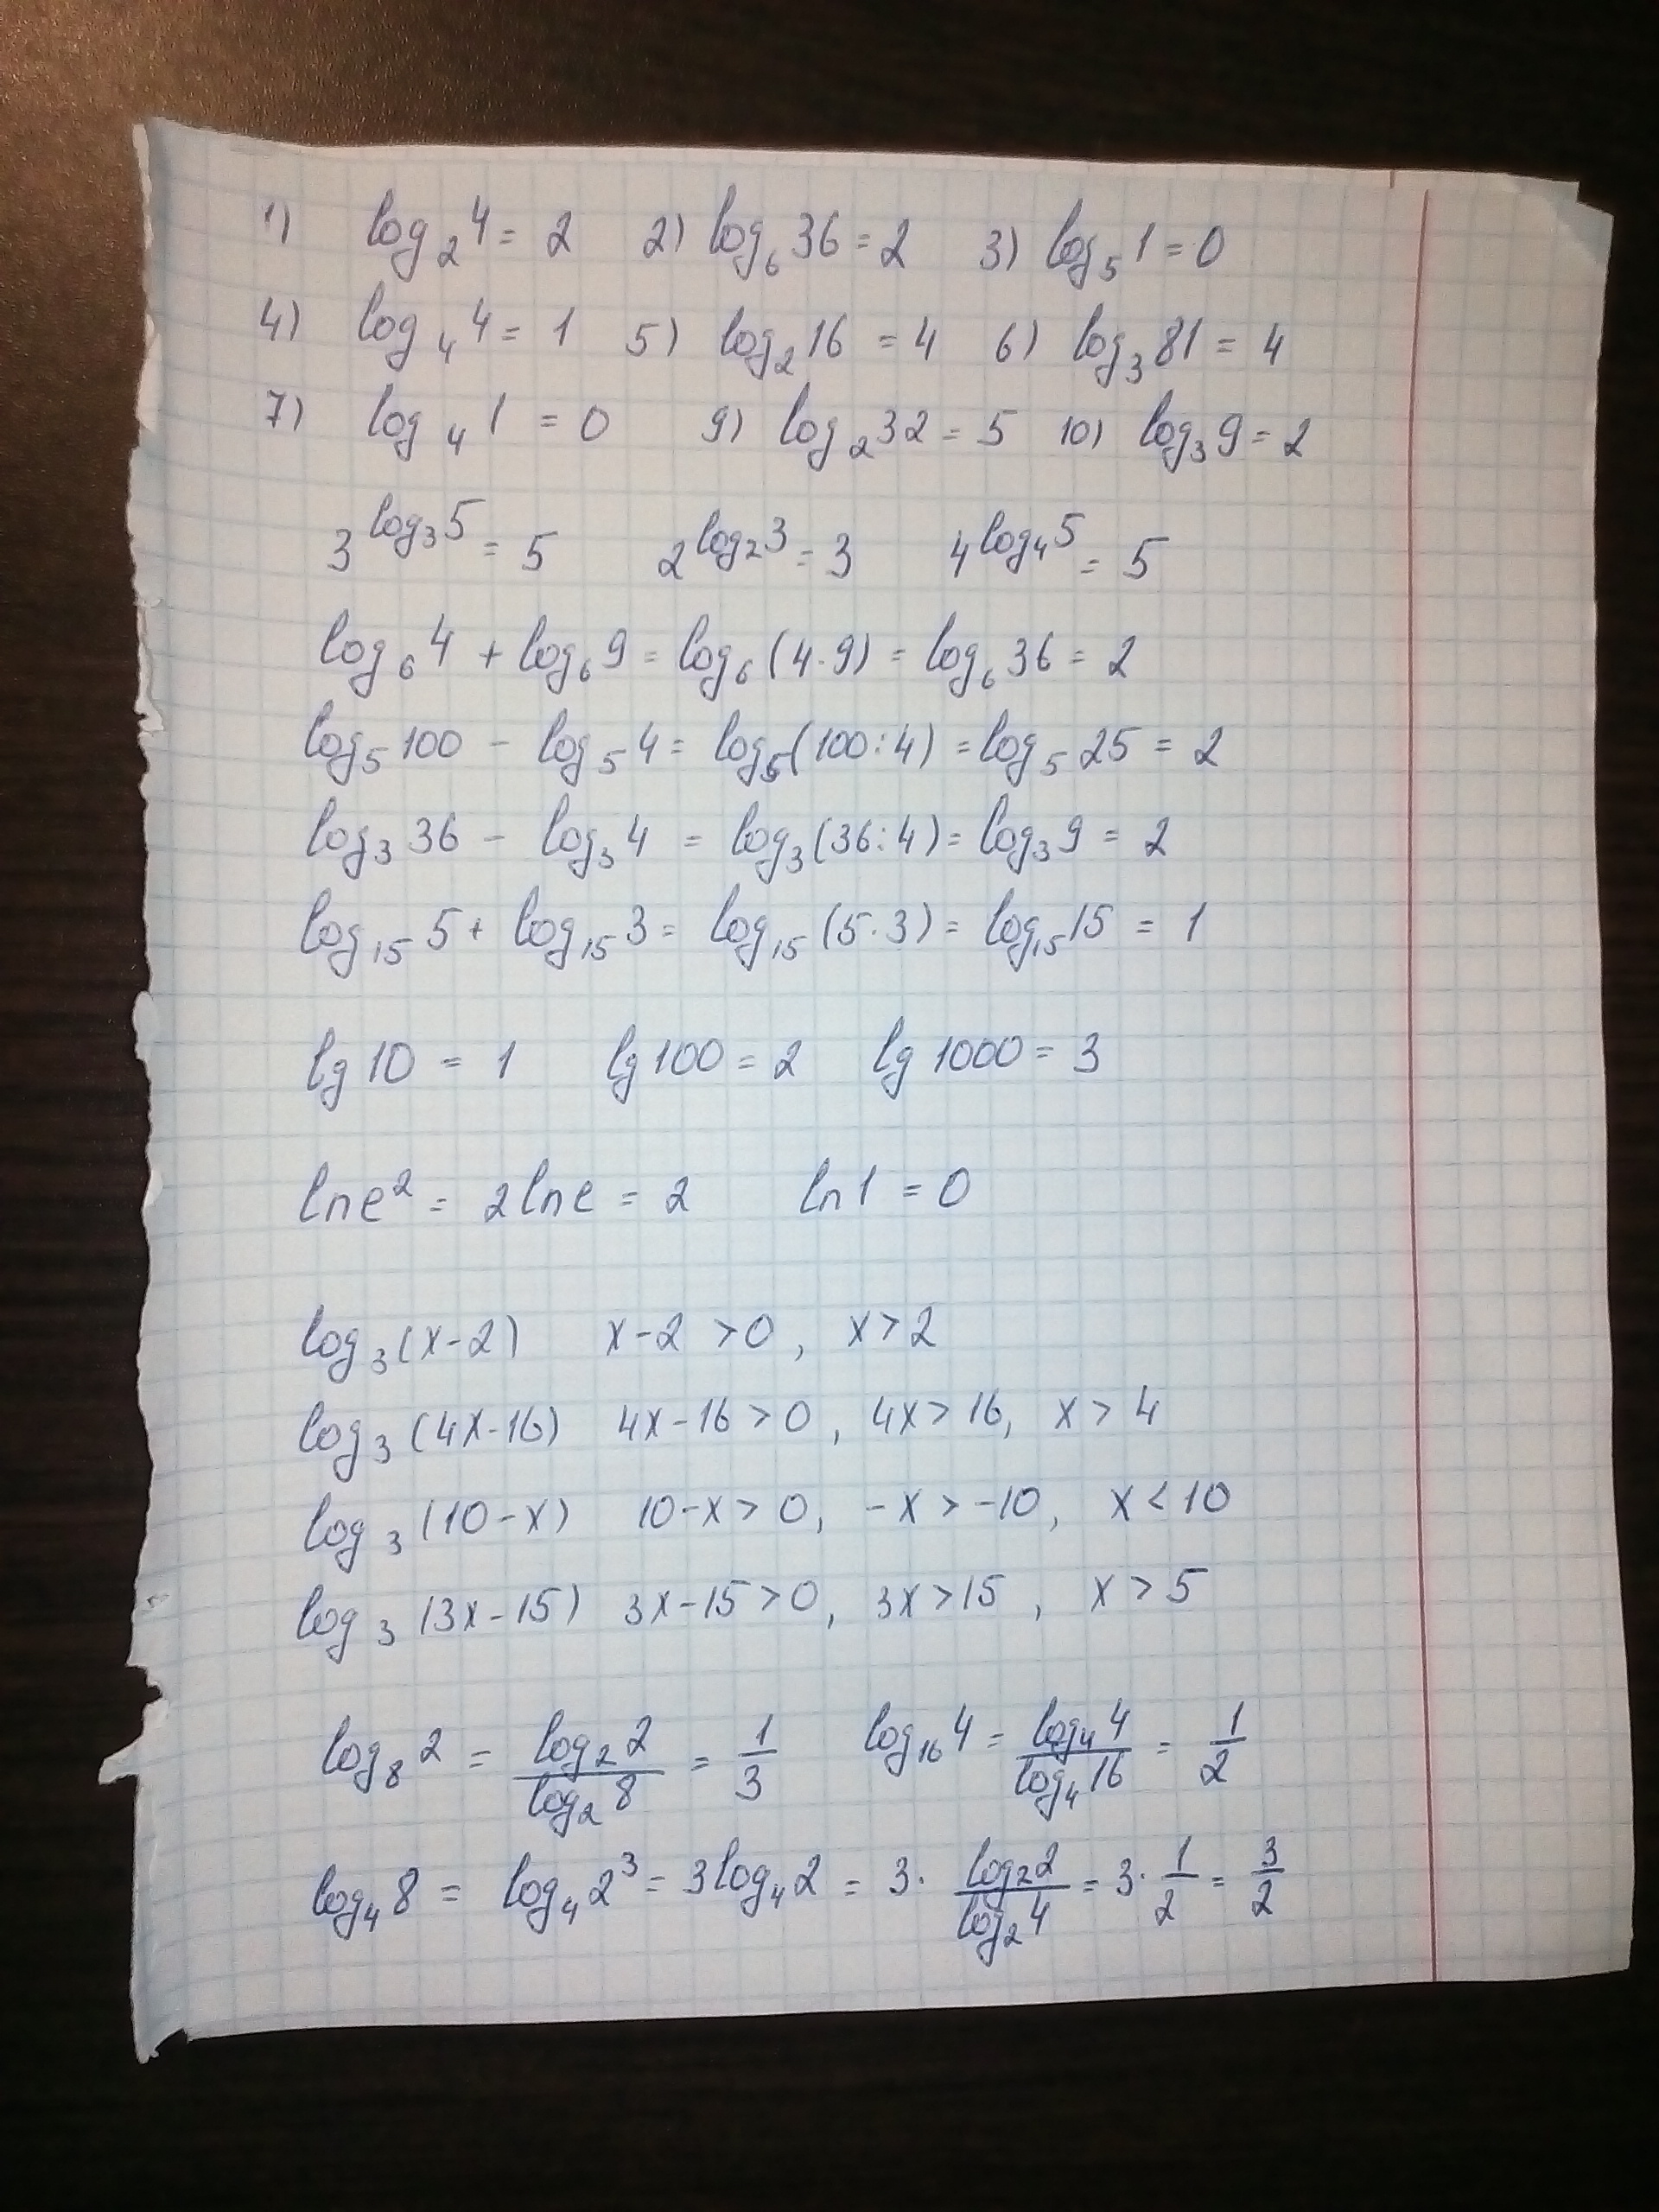 1) log₂4 = 2 2) log₆36 = 2 3) log₅1 = 0
4) log₄4 = 1 5) log₂16 = 4 6) log₃81 = 4
7) log₄1 = 0 9) log₂32 = 5 10) log₃9 = 2
3^(log₃5) = 5 2^(log₂3) = 3 4^(log₄5) = 5
log₆4 + log₆9 = log₆(4·9) = log₆36 = 2
log₅100 - log₅4 = log₅(100:4) = log₅25 = 2
log₃36 - log₃4 = log₃(36:4) = log₃9 = 2
log₁₅5 + log₁₅3 = log₁₅(5·3) = log₁₅15 = 1
lg10 = 1 lg100 = 2 lg1000 = 3
lne² = 2lne = 2 ln1 = 0
log₃(x-2) x-2 >0, x>2
log₃(4x-16) 4x-16>0, 4x>16, x>4
log₃(10-x) 10-x>0, -x>-10, x<10
log₃(3x-15) 3x-15>0, 3x>15, x>5
log₈2 = log₂2/log₂8 = 1/3 log₁₆4 = log₄4/log₄16 = 1/2
log₄8 = log₄2³ = 3log₄2 = 3·log₂2/log₂4 = 3·1/2 = 3/2